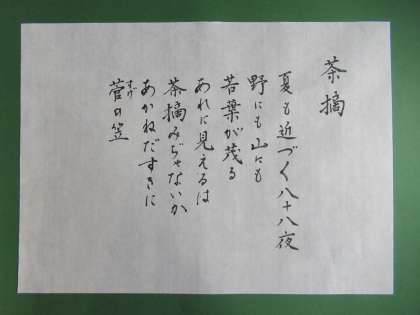 茶摘
夏も近づく八十八夜
野にも山にも
若葉が茂る
あれに見えるは
茶摘みぢゃないか
あかねだすきに
菅の笠
すげ